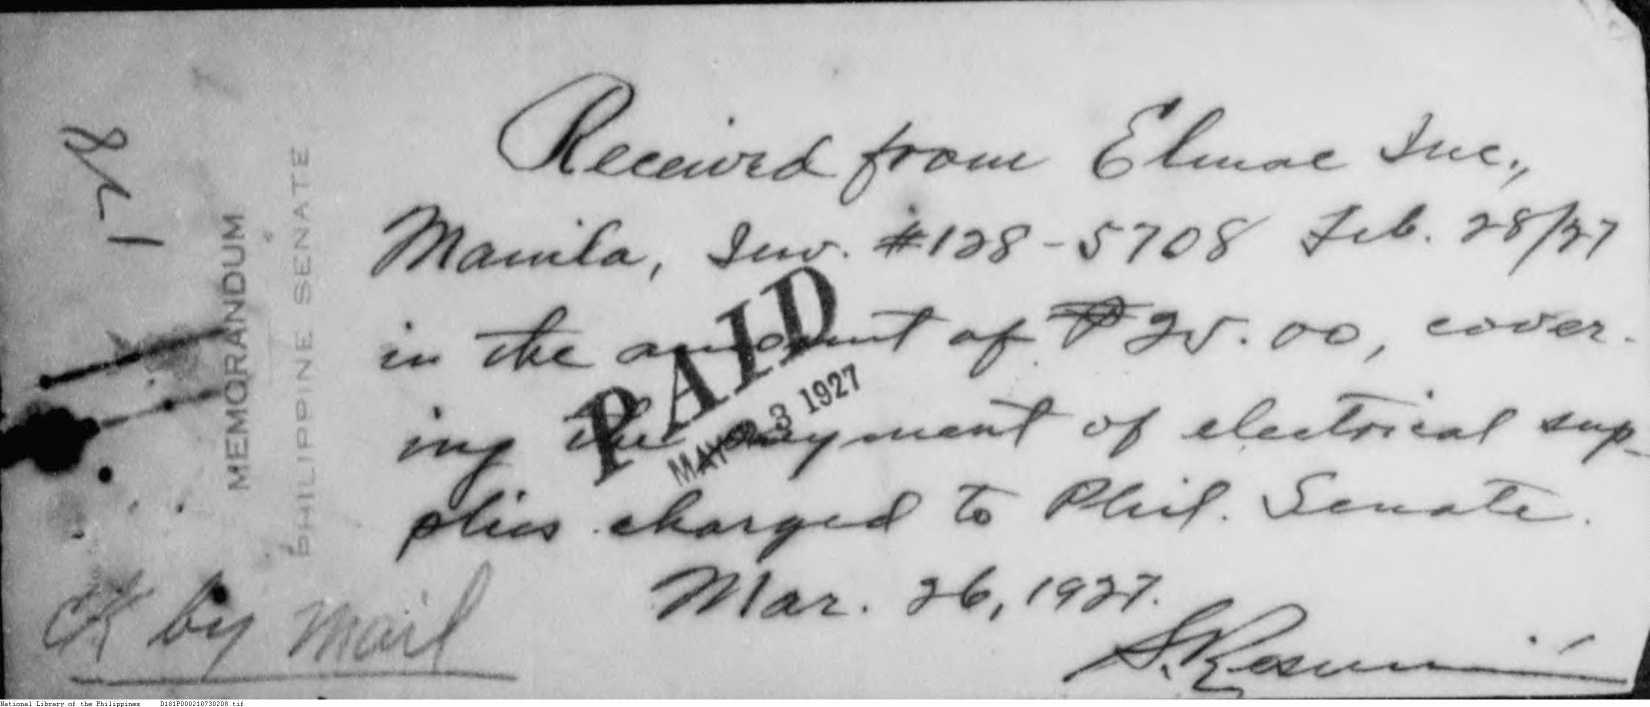 Received from Elmac Inc.,
Manila, Inv. #128-5708 Feb. 28/27
in the amount of ₱25.00, cover-
ing the payment of electrical sup-
plies charged to Phil. Senate.
Mar. 26, 1927.
PAID
MAY 3 1927
MEMORANDUM
PHILIPPINE SENATE
178
CK by mail
National Library of the Philippines D181P000210730208.tif